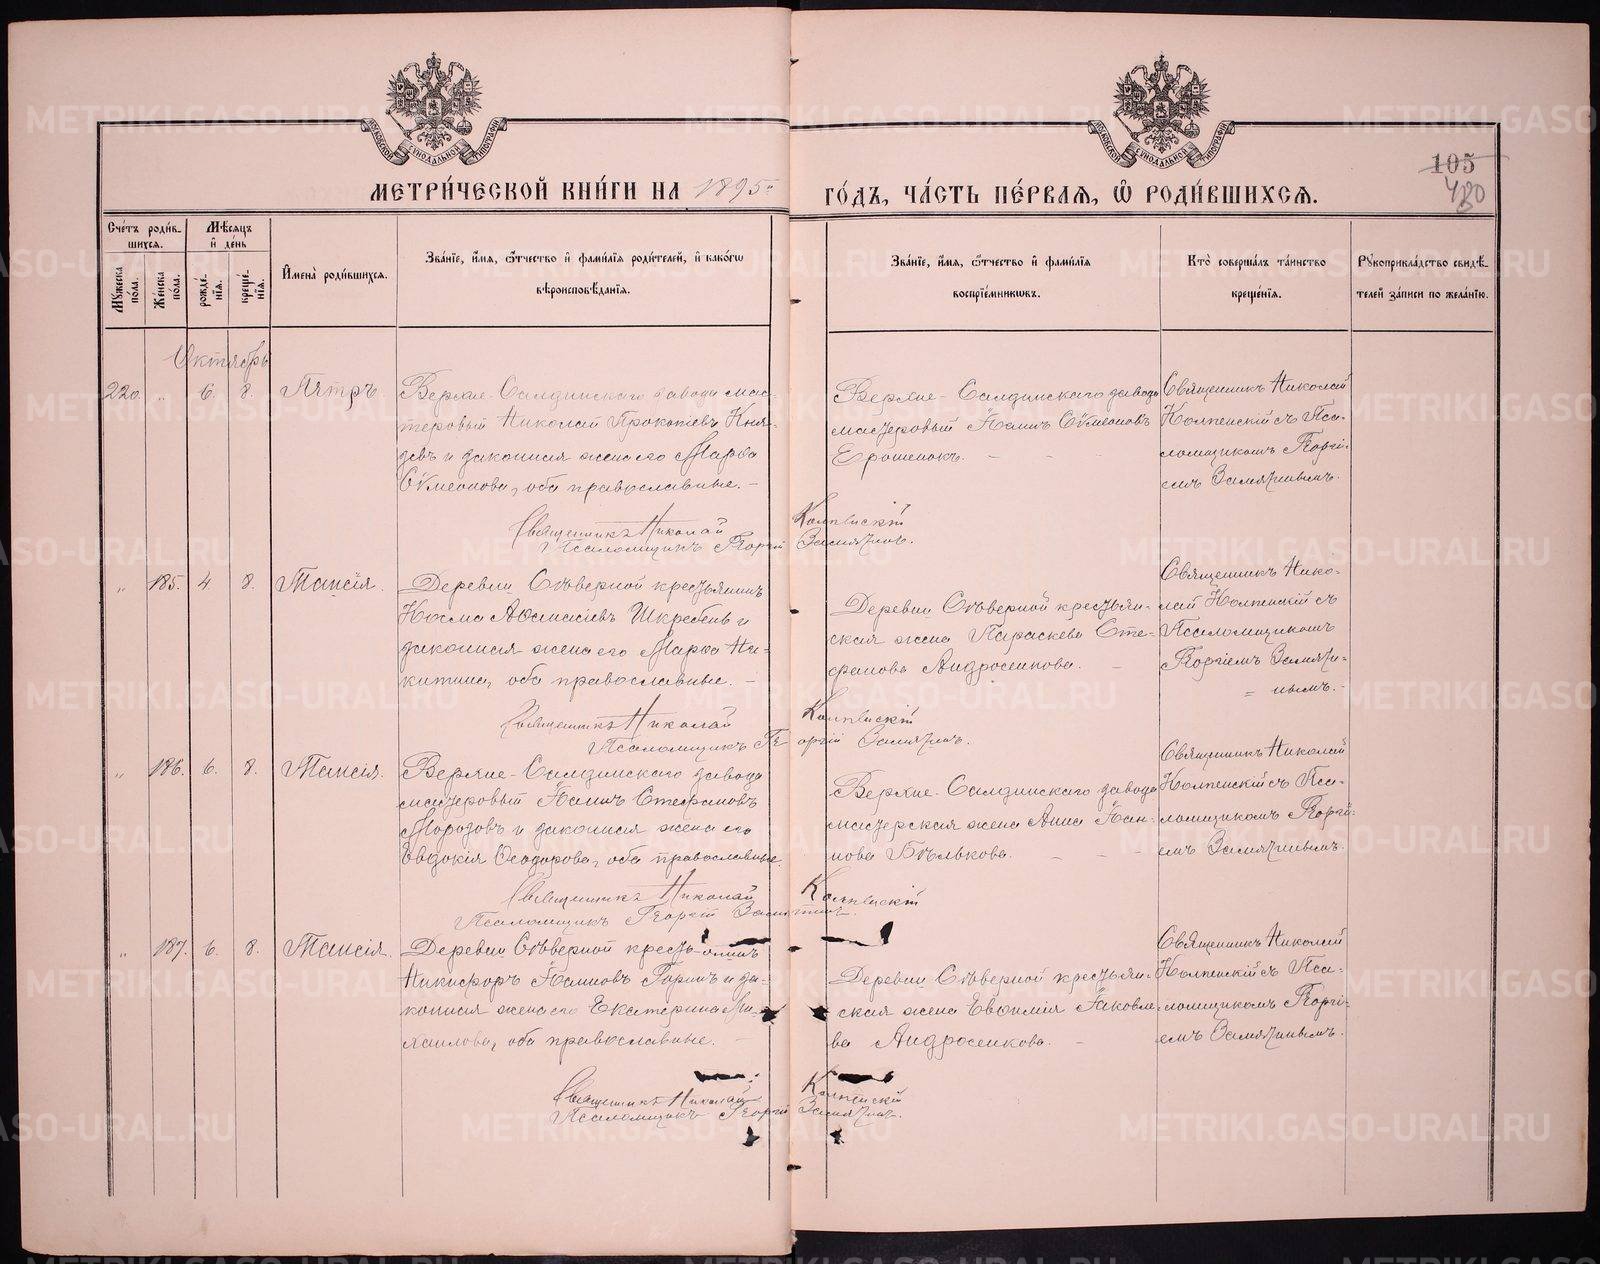 МОСКОВСКОЙ СУНОДАЛЬНОЙ ТИПОГРАФІИ
МОСКОВСКОЙ СУНОДАЛЬНОЙ ТИПОГРАФІИ
105
480
МЕТРИ́ЧЕСКОЙ КНИ́ГИ НА 1895й
ГО́ДЪ, ЧА́СТЬ ПЕ́РВАѦ, Ѿ РОДИ́ВШИХСѦ.
Сче́тъ роди́в-
шихсѧ.
Мѣ́сѧцъ
и҆ де́нь
Мꙋ́жеска по́ла.
Же́нска по́ла.
рожде́-
нїѧ.
креще́-
нїѧ.
И҆мена̀ роди́вшихсѧ.
Зва́нїе, и҆́мѧ, ѻ҆́тчество и҆ фами́лїѧ роди́телей, и҆ како́гѡ
вѣроисповѣ́данїѧ.
Зва́нїе, и҆́мѧ, ѻ҆́тчество и҆ фами́лїѧ
воспрїе́мникѡвъ.
Кто̀ соверша́лъ та́инство
креще́нїѧ.
Рꙋкоприкла́дство свидѣ́-
телей за́писи по жела́нїю.
Октябрь
220. „ 6. 8. Петръ.
Верхне-Салдинскаго завода мас-
теровый Николай Прокопіевъ Кня-
зевъ и законная жена его Марѳа
Сѵмеонова, оба православные. –
Верхне-Салдинскаго завода
мастеровый Іоаннъ Сѵмеоновъ
Ерошенокъ. – –
Священникъ Николай
Колпенскій съ Пса-
ломщикомъ Георгі-
емъ Замятинымъ.
Священникъ Николай Колпенскій
Псаломщикъ Георгій Замятинъ.
„ 185. 4 8. Таисія.
Деревни Сѣверной крестьянинъ
Косма Аѳанасіевъ Шкребень и
законная жена его Марѳа Ни-
китина, оба православные. –
Деревни Сѣверной крестьян-
ская жена Параскева Сте-
фанова Андросенкова. –
Священникъ Нико-
лай Колпенскій съ
Псаломщикомъ
Георгіемъ Замяти-
= нымъ. –
Священникъ Николай Колпенскій
Псаломщикъ Георгій Замятинъ.
„ 186. 6. 8. Таисія.
Верхне-Салдинскаго завода
мастеровый Іоаннъ Стефановъ
Морозовъ и законная жена его
Евдокія Ѳеодорова, оба православные.
Верхне-Салдинскаго завода
мастерская жена Анна Іоан-
нова Бѣлькова. – – –
Священникъ Николай
Колпенскій съ Пса-
ломщикомъ Георгі-
емъ Замятинымъ.
Священникъ Николай Колпенскій
Псаломщикъ Георгій Замятинъ.
„ 187. 6. 8. Таисія.
Деревни Сѣверной крестьянинъ
Никифоръ Іоанновъ Горинъ и за-
конная жена его Екатерина Ми-
хаилова, оба православные. –
Деревни Сѣверной крестьян-
ская жена Евѳимія Іаковле-
ва Андросенкова. –
Священникъ Николай
Колпенскій съ Пса-
ломщикомъ Георгі-
емъ Замятинымъ.
Священникъ Николай Колпенскій
Псаломщикъ Георгій Замятинъ.
METRIKI.GASO-URAL.RU